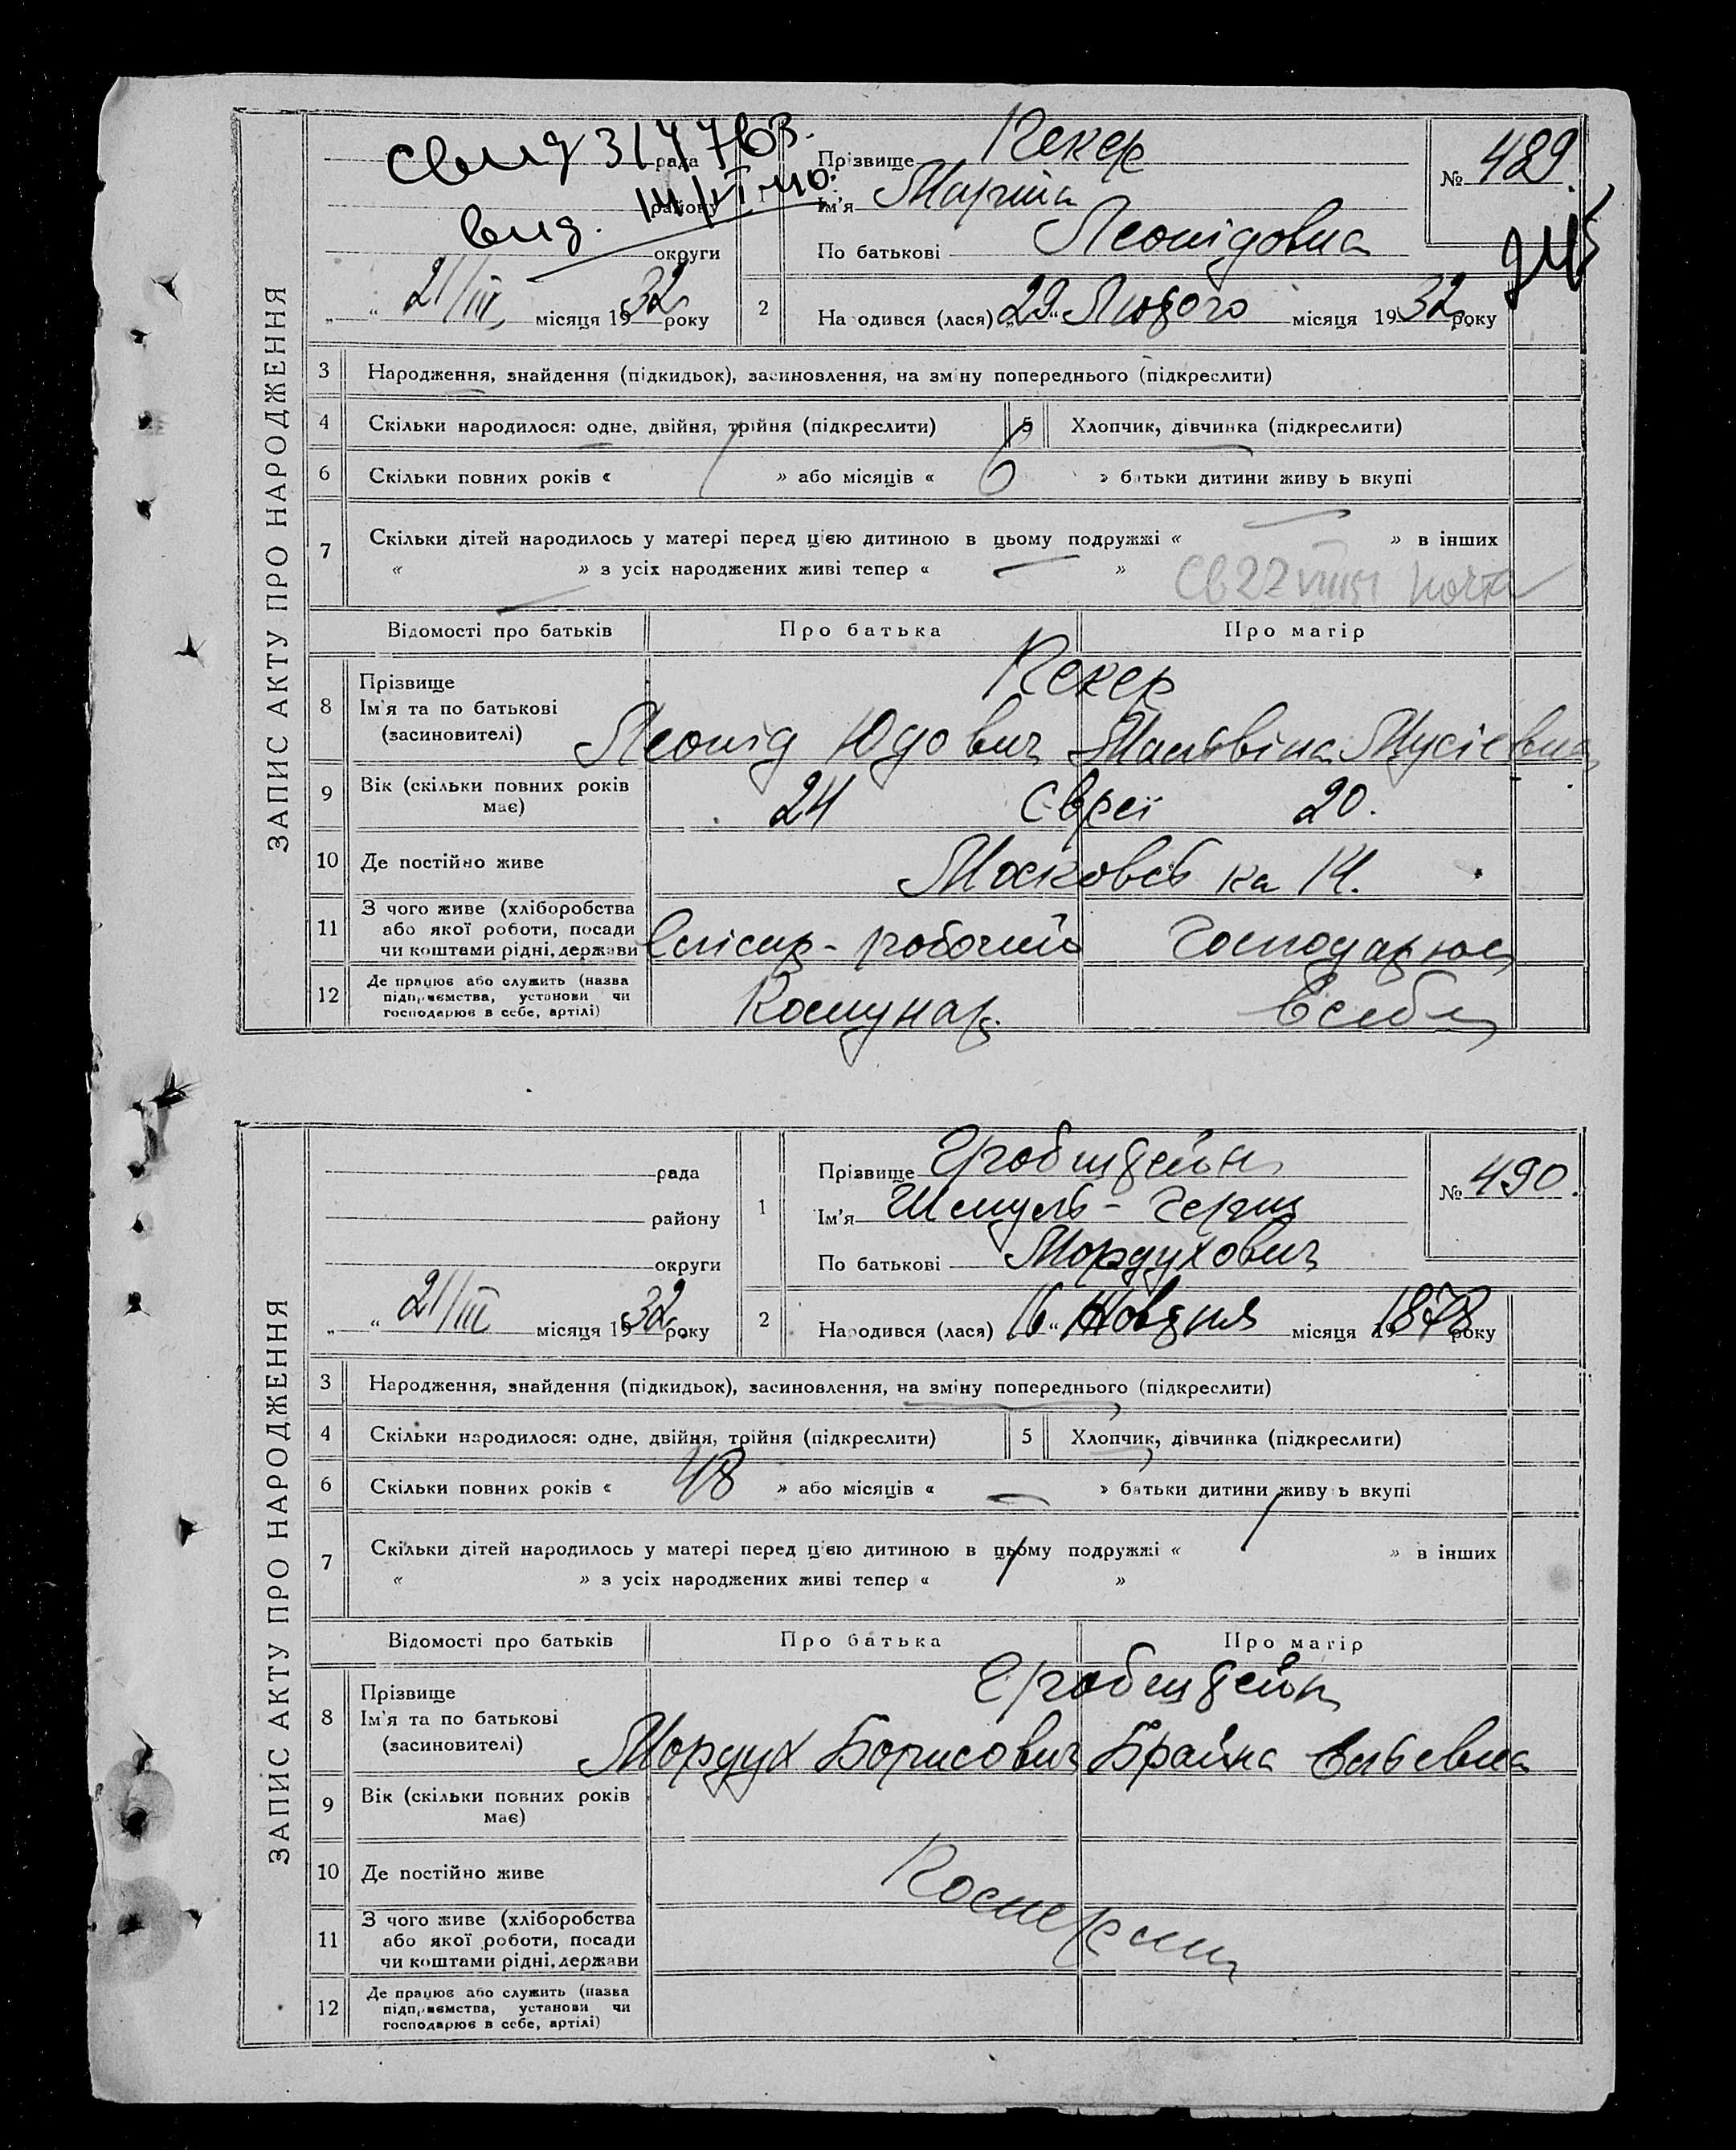 ЗАПИС АКТУ ПРО НАРОДЖЕННЯ
Свид 314763.
вид. 14/VI 40.
рада
району
округи
„ “ 21/III місяця 1932 року
1
Прізвище Кекер
Ім'я Марпіа
По батькові Леонідовна
№ 489.
2
Народився (лася) „29“ Лютого місяця 1932 року
3 Народження, знайдення (підкидьок), засиновлення, на зміну попереднього (підкреслити)
4 Скільки народилося: одне, двійня, трійня (підкреслити)
5 Хлопчик, дівчинка (підкреслити)
6 Скільки повних років « / » або місяців « 6 » батьки дитини живуть вкупі
7 Скільки дітей народилось у матері перед цією дитиною в цьому подружжі « — » в інших
« — » з усіх народжених живі тепер « — »
Св 22 VIII 51 почта
Відомості про батьків Про батька Про матір
8 Прізвище
Ім'я та по батькові
(засиновителі)
Кекер
Леонід Юдович Мальвіна Мусієвна
9 Вік (скільки повних років має)
24 Євреї 20.
10 Де постійно живе
Московсь ка 14.
11 З чого живе (хліборобства або якої роботи, посади чи коштами рідні, держави
Слісар - робочий Господарює
12 Де працює або служить (назва підприємства, установи чи господарює в себе, артілі)
Комунар. В себе
ЗАПИС АКТУ ПРО НАРОДЖЕННЯ
рада
району
округи
„ “ 21/III місяця 1932 року
1
Прізвище Гробштейн
Ім'я Шемуль - Герш
По батькові Мордухович
№ 490.
2
Народився (лася) „16“ Жовтня місяця 1878 року
3 Народження, знайдення (підкидьок), засиновлення, на зміну попереднього (підкреслити)
4 Скільки народилося: одне, двійня, трійня (підкреслити)
5 Хлопчик, дівчинка (підкреслити)
6 Скільки повних років « 48 » або місяців « — » батьки дитини живуть вкупі
7 Скільки дітей народилось у матері перед цією дитиною в цьому подружжі « / » в інших
« » з усіх народжених живі тепер « / »
Відомості про батьків Про батька Про матір
8 Прізвище
Ім'я та по батькові
(засиновителі)
Гробштейн
Мордух Борисович Брайна
9 Вік (скільки повних років має)
10 Де постійно живе
11 З чого живе (хліборобства або якої роботи, посади чи коштами рідні, держави
12 Де працює або служить (назва підприємства, установи чи господарює в себе, артілі)